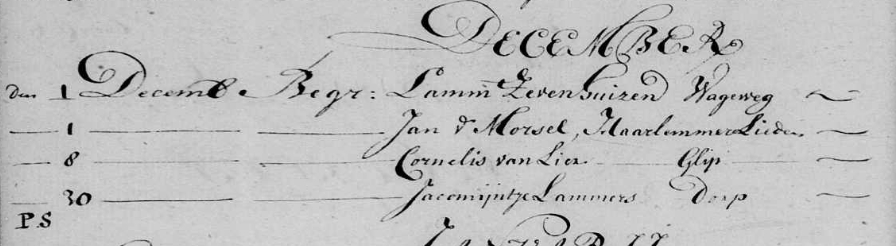 DECEMBER
den 1 Decemb Begr: Lamm.t Zevenhuizen Wageweg
1 Jan d Morsel, Haarlemmer Lieden
8 Cornelis van Lier Glip
30 Jacomijntje Lammers Dorp
P.S